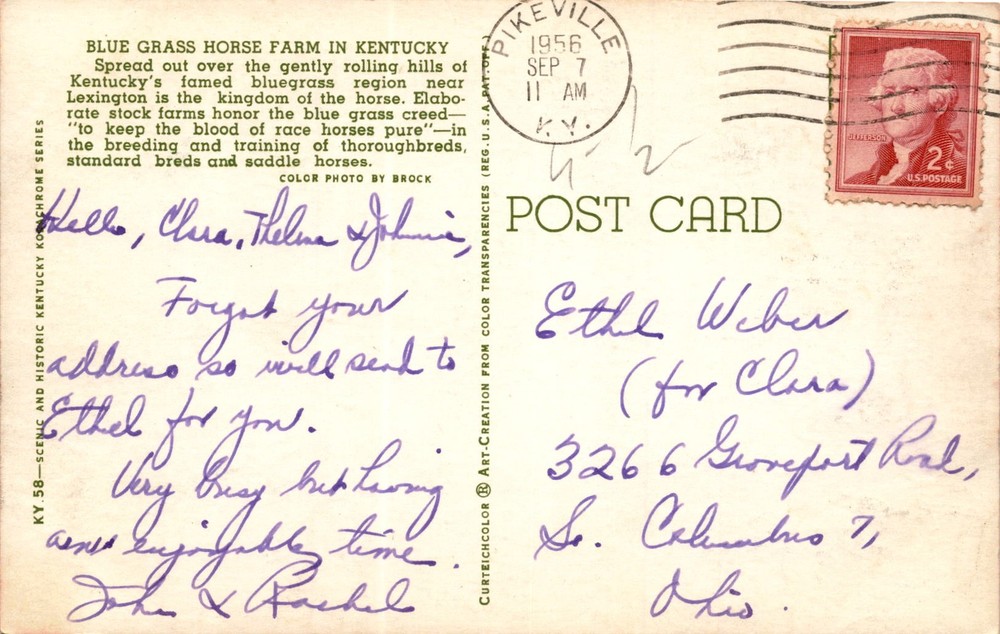 BLUE GRASS HORSE FARM IN KENTUCKY
Spread out over the gently rolling hills of
Kentucky's famed bluegrass region near
Lexington is the kingdom of the horse. Elabo-
rate stock farms honor the blue grass creed—
"to keep the blood of race horses pure"—in
the breeding and training of thoroughbreds,
standard breds and saddle horses.
COLOR PHOTO BY BROCK
KY. 58—SCENIC AND HISTORIC KENTUCKY KODACHROME SERIES
Hello, Clara, Thelma & Johnnie,
Forgot your
address so will send to
Ethel for you.
Very busy but having
an enjoyable time.
John & Rachel
CURTEICHCOLOR ® ART-CREATION FROM COLOR TRANSPARENCIES (REG. U.S.A. PAT. OFF.)
PIKEVILLE
1956
SEP 7
11 AM
KY.
JEFFERSON
2¢
U.S. POSTAGE
POST CARD
Ethel Weber
(for Clara)
3266 Groveport Road,
So. Columbus 7,
Ohio.